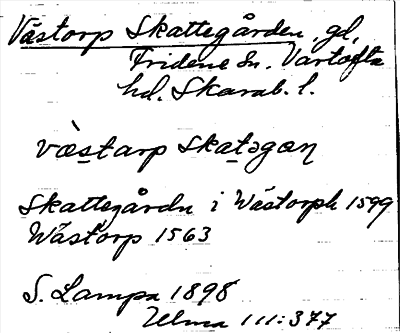 Västorp Skattegården, gd,
Fridene Sn. Vartofta
hd. Skarab. l.
væstarp skatəgaɳ
Skattegårdn i Wästorph 1599
Wästorp 1563
S. Lampa 1898
Ulma 111:377